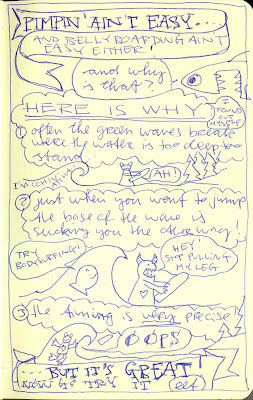 PIMPIN' AIN'T EASY....
AND BELLYBOARDING AIN'T
EASY EITHER!
and why
is that?
HERE IS WHY
I FOUND
OUT
MYSELF
① often the green waves break
where the water is too deep too
stand
I'M COMING
AH!
② just when you want to jump
the base of the wave is
sucking you the other way!
TRY
BODYSURFING!
HEY!
STOP PULLING
MY LEG
③ the timing is very precise
OOPS
...BUT IT'S GREAT
NOW GO TRY IT